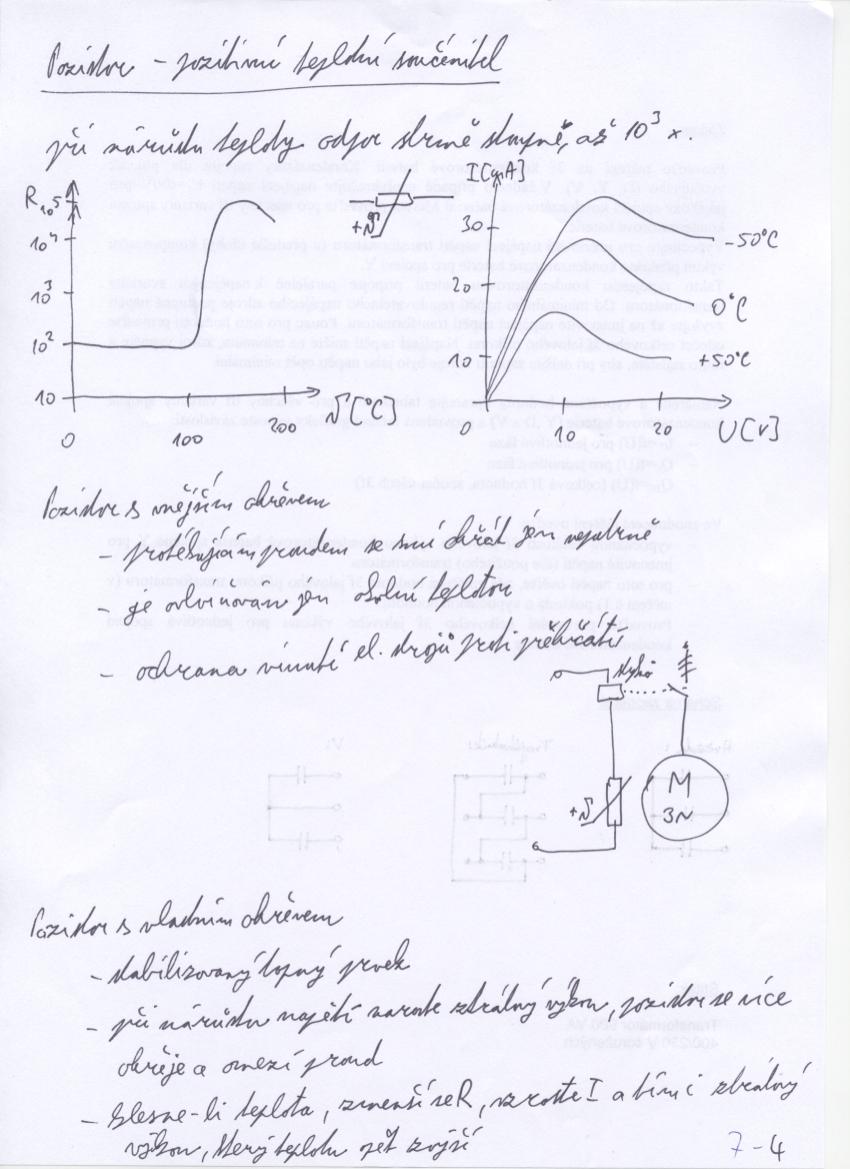 Pozistor - pozitivní teplotní součinitel
při nárůstu teploty odpor strmě stoupne, až 10³ x.
R 10⁵
10⁴
10³
10²
10
0 100 200 T[°C]
+ϑ
I[mA]
30
20
10
0 10 20 U[V]
-50°C
0°C
+50°C
Pozistor s vnějším ohřevem
- protékajícím proudem se smí ohřát jen nepatrně
- je ovlivňován jen okolní teplotou
- ochrana vinutí el. strojů proti přehřátí
Stykač
+ϑ
M
3~
Pozistor s vlastním ohřevem
- stabilizovaný topný prvek
- při nárůstu napětí naroste ztrátový výkon, pozistor se více
ohřeje a omezí proud
- klesne-li teplota, zmenší se R, vzroste I a tím i ztrátový
výkon, který teplotu opět zvýší
7-4